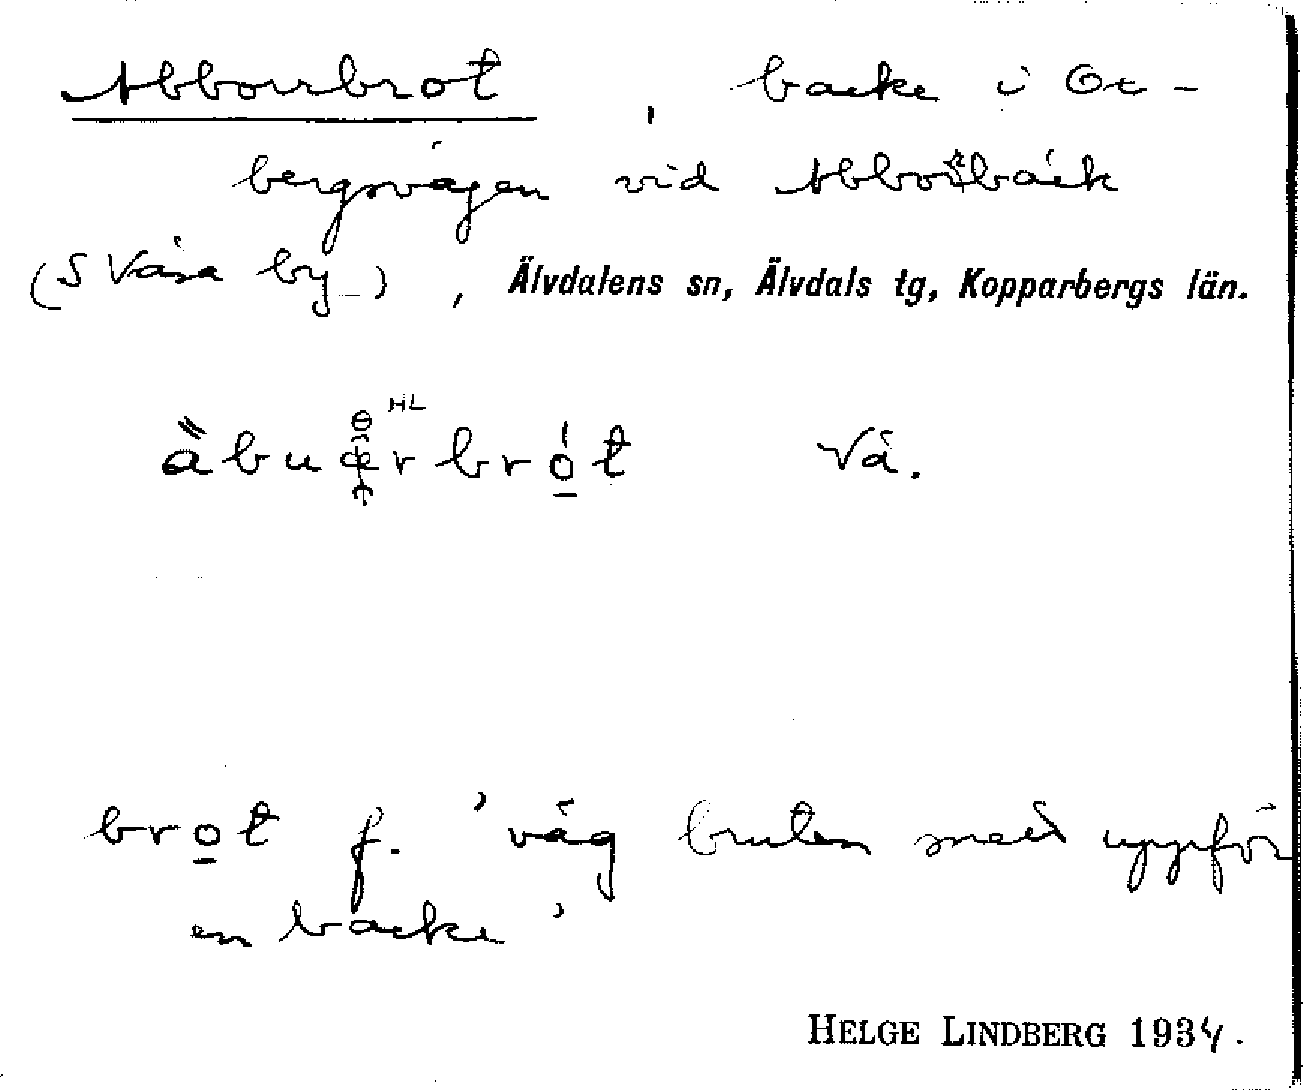 Abborrbrot, backe i Ox-
bergsvägen vid Abborrbäck
(S Våsa by), Älvdalens sn, Älvdals tg, Kopparbergs län.
HL
Vå.
bro̲t f. 'väg bruten med uppför
en backe'
HELGE LINDBERG 1934.